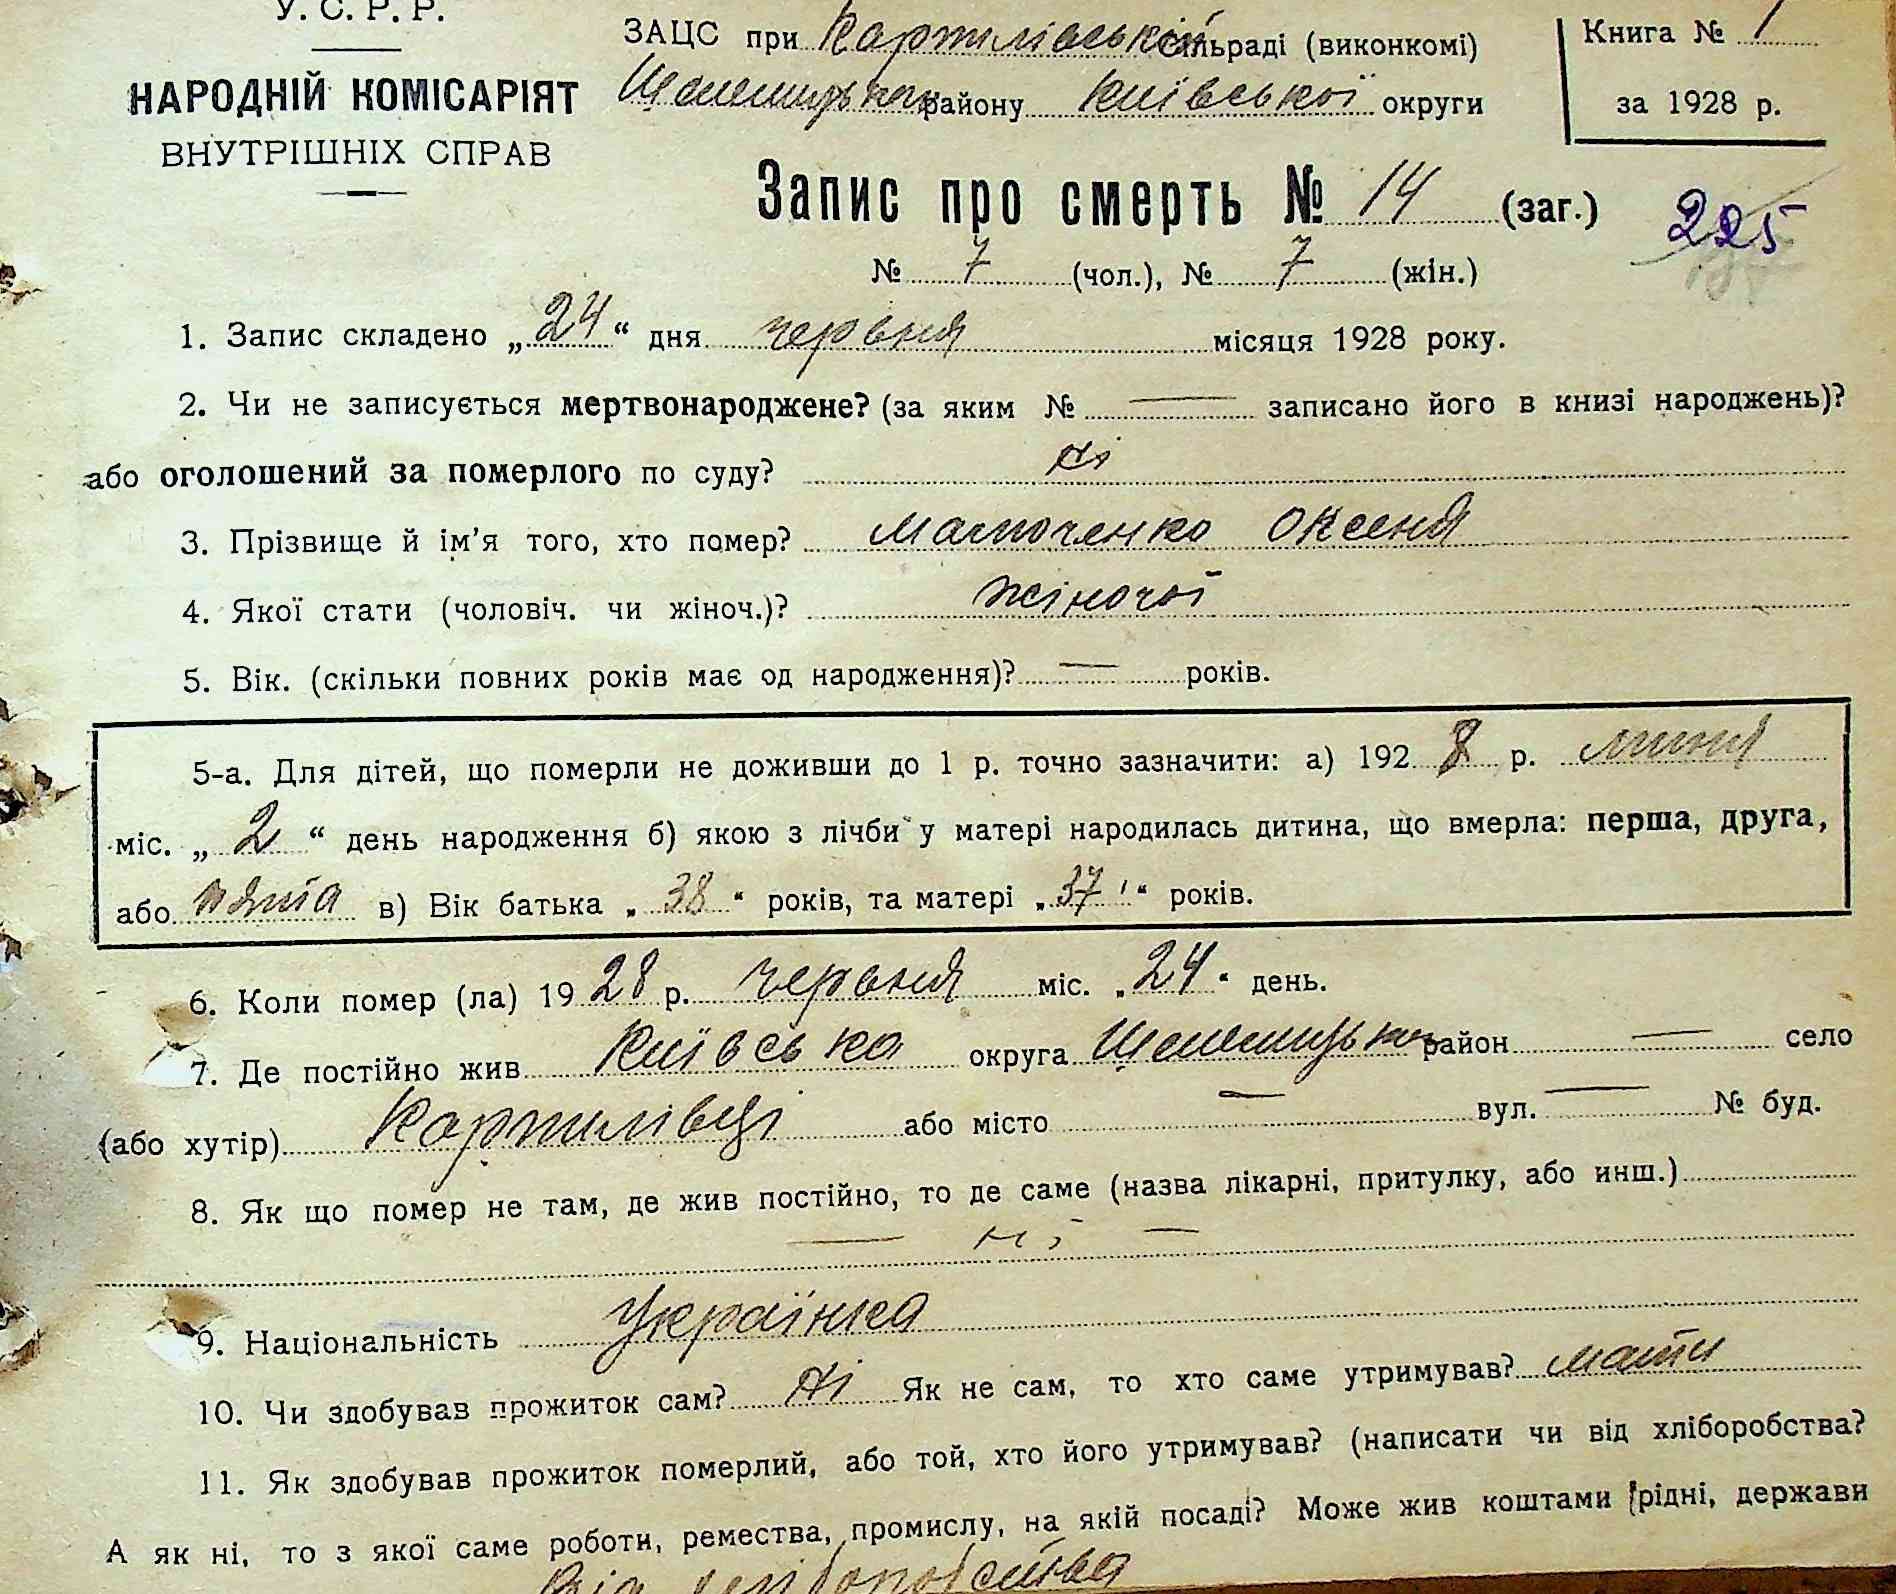 У. С. Р. Р.
НАРОДНІЙ КОМІСАРІЯТ
ВНУТРІШНІХ СПРАВ
ЗАЦС при Кортилівській сільраді (виконкомі)
району Київської округи
Книга № 1
за 1928 р.
Запис про смерть № 14 (заг.)
225
№ 7 (чол.), № 7 (жін.)
1. Запис складено „24“ дня червня місяця 1928 року.
2. Чи не записується мертвонароджене? (за яким № — записано його в книзі народжень)?
або оголошений за померлого по суду? Ні
3. Прізвище й ім'я того, хто помер? Матюченко Оксеня
4. Якої стати (чоловіч. чи жіноч.)? жіночої
5. Вік. (скільки повних років має од народження)? — років.
5-а. Для дітей, що померли не доживши до 1 р. точно зазначити: а) 192 р.
міс. „2“ день народження б) якою з лічби у матері народилась дитина, що вмерла: перша, друга,
або пята в) Вік батька „38“ років, та матері „37“ років.
6. Коли помер (ла) 1928 р. червня міс. „24“ день.
7. Де постійно жив Київська округа район — село
(або хутір) або місто — вул. — № буд.
8. Як що помер не там, де жив постійно, то де саме (назва лікарні, притулку, або инш.)
— ні —
9. Національність Українка
10. Чи здобував прожиток сам? Ні Як не сам, то хто саме утримував? мати
11. Як здобував прожиток померлий, або той, хто його утримував? (написати чи від хліборобства?
А як ні, то з якої саме роботи, ремества, промислу, на якій посаді? Може жив коштами рідні, держави
Від хліборобства